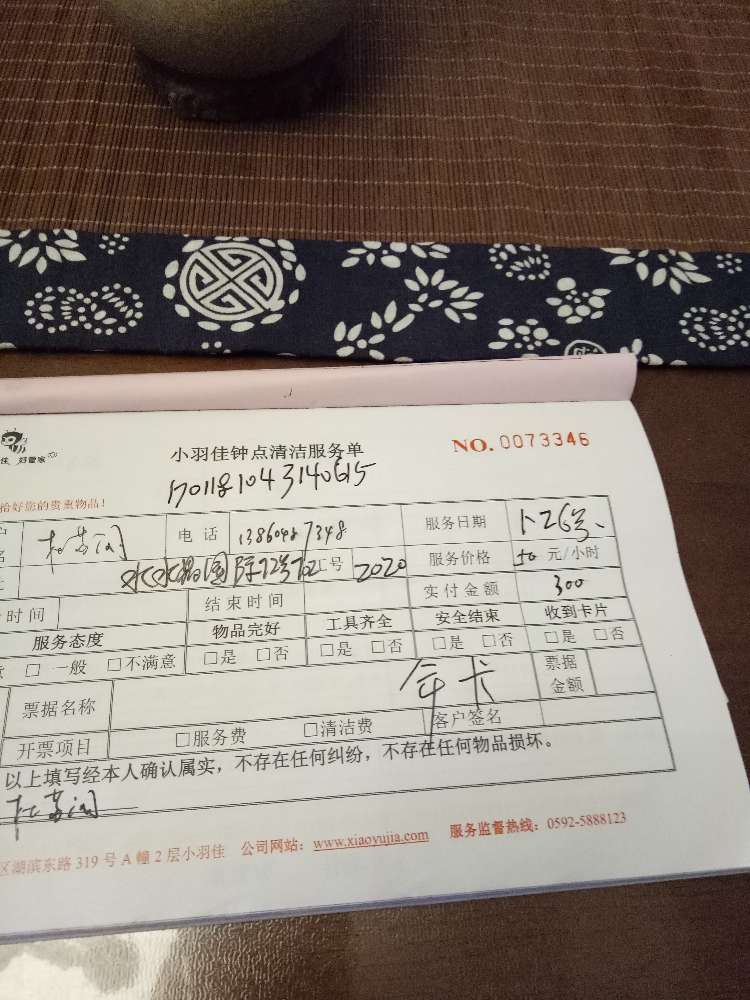 佳 好管家
小羽佳钟点清洁服务单 NO. 0073346
1701181043140615
拾好您的贵重物品!
名 电话 服务日期 1-26号
工号 2020 服务价格 50 元/小时
时间 结束时间 实付金额 300
服务态度 物品完好 工具齐全 安全结束 收到卡片
□ 一般 □不满意 □是 □否 □是 □否 □是 □否 □是 □否
票据名称 年卡 票据金额
开票项目 □服务费 □清洁费 客户签名
以上填写经本人确认属实,不存在任何纠纷,不存在任何物品损坏。
区湖滨东路 319 号 A 幢 2 层小羽佳 公司网站:www.xiaoyujia.com 服务监督热线:0592-5888123